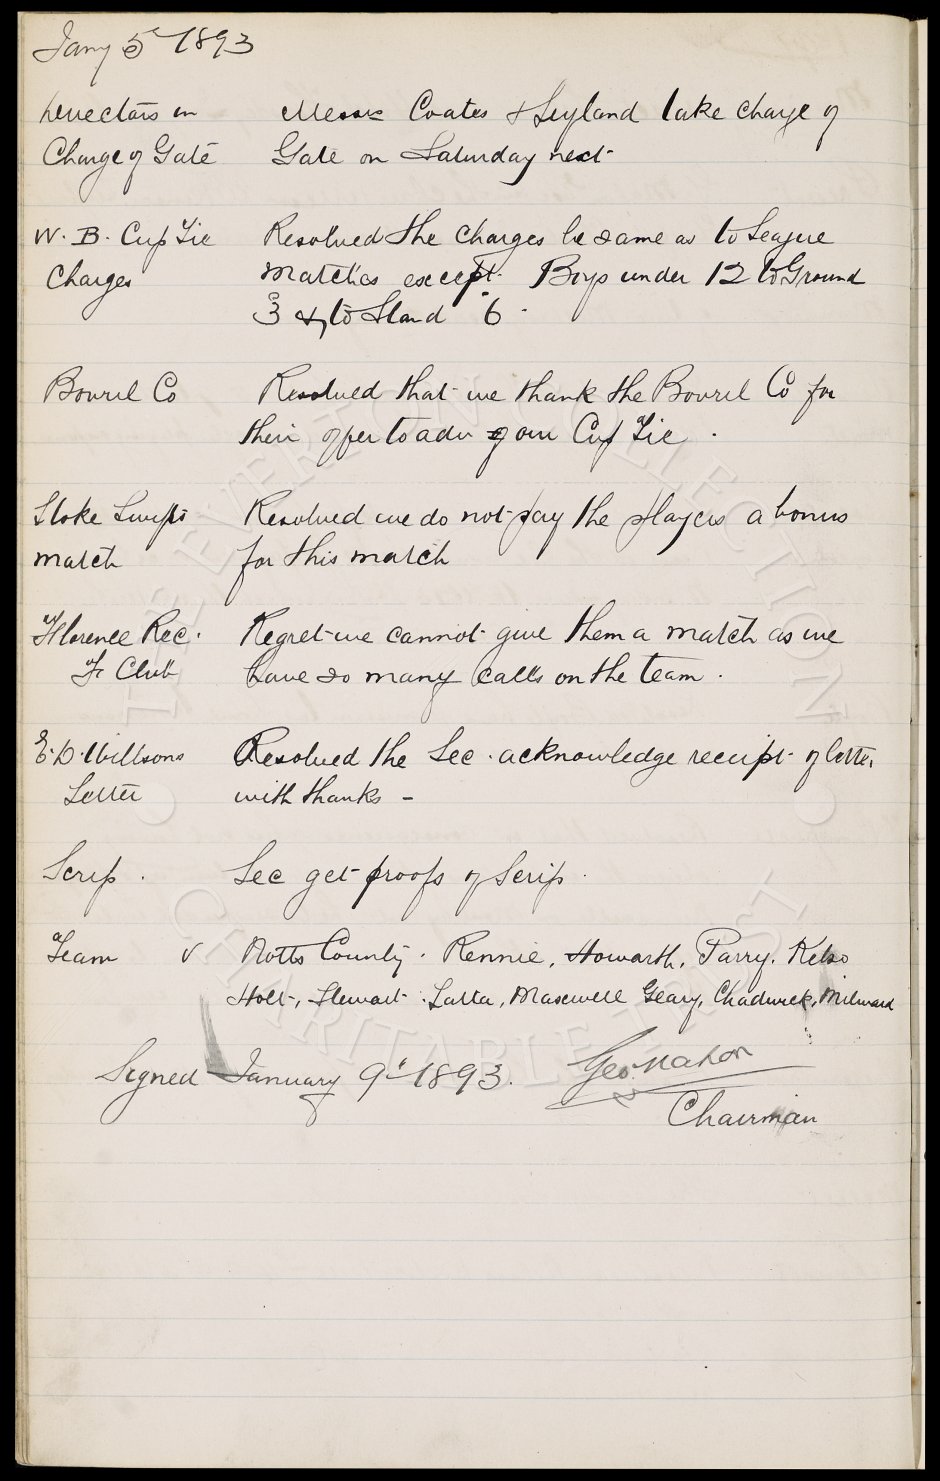 Jany 5th 1893
Directors in Messrs Coates & Leyland take charge of
Charge of Gate Gate on Saturday next
W. B. Cup Tie Resolved the charges be same as to League
Charges matches except Boys under 12 to Ground
3d & to Stand 6d.
Bovril Co Resolved that we thank the Bovril Co for
their offer to adv our Cup Tie.
Stoke Swifts Resolved we do not pay the players a bonus
match for this match
Florence Rec. Regret we cannot give them a match as we
F. Club have so many calls on the team.
E. D. Willsons Resolved the Sec. acknowledge receipt of letter
Letter with thanks -
Scrip. Sec get proofs of Scrip.
Team v Notts County. Rennie, Howarth, Parry, Kelso
Holt, Stewart Latta, Maxwell Geary, Chadwick, Milward
Signed January 9th 1893. Geo. Mahon
Chairman
THE EVERTON COLLECTION
CHARITABLE TRUST